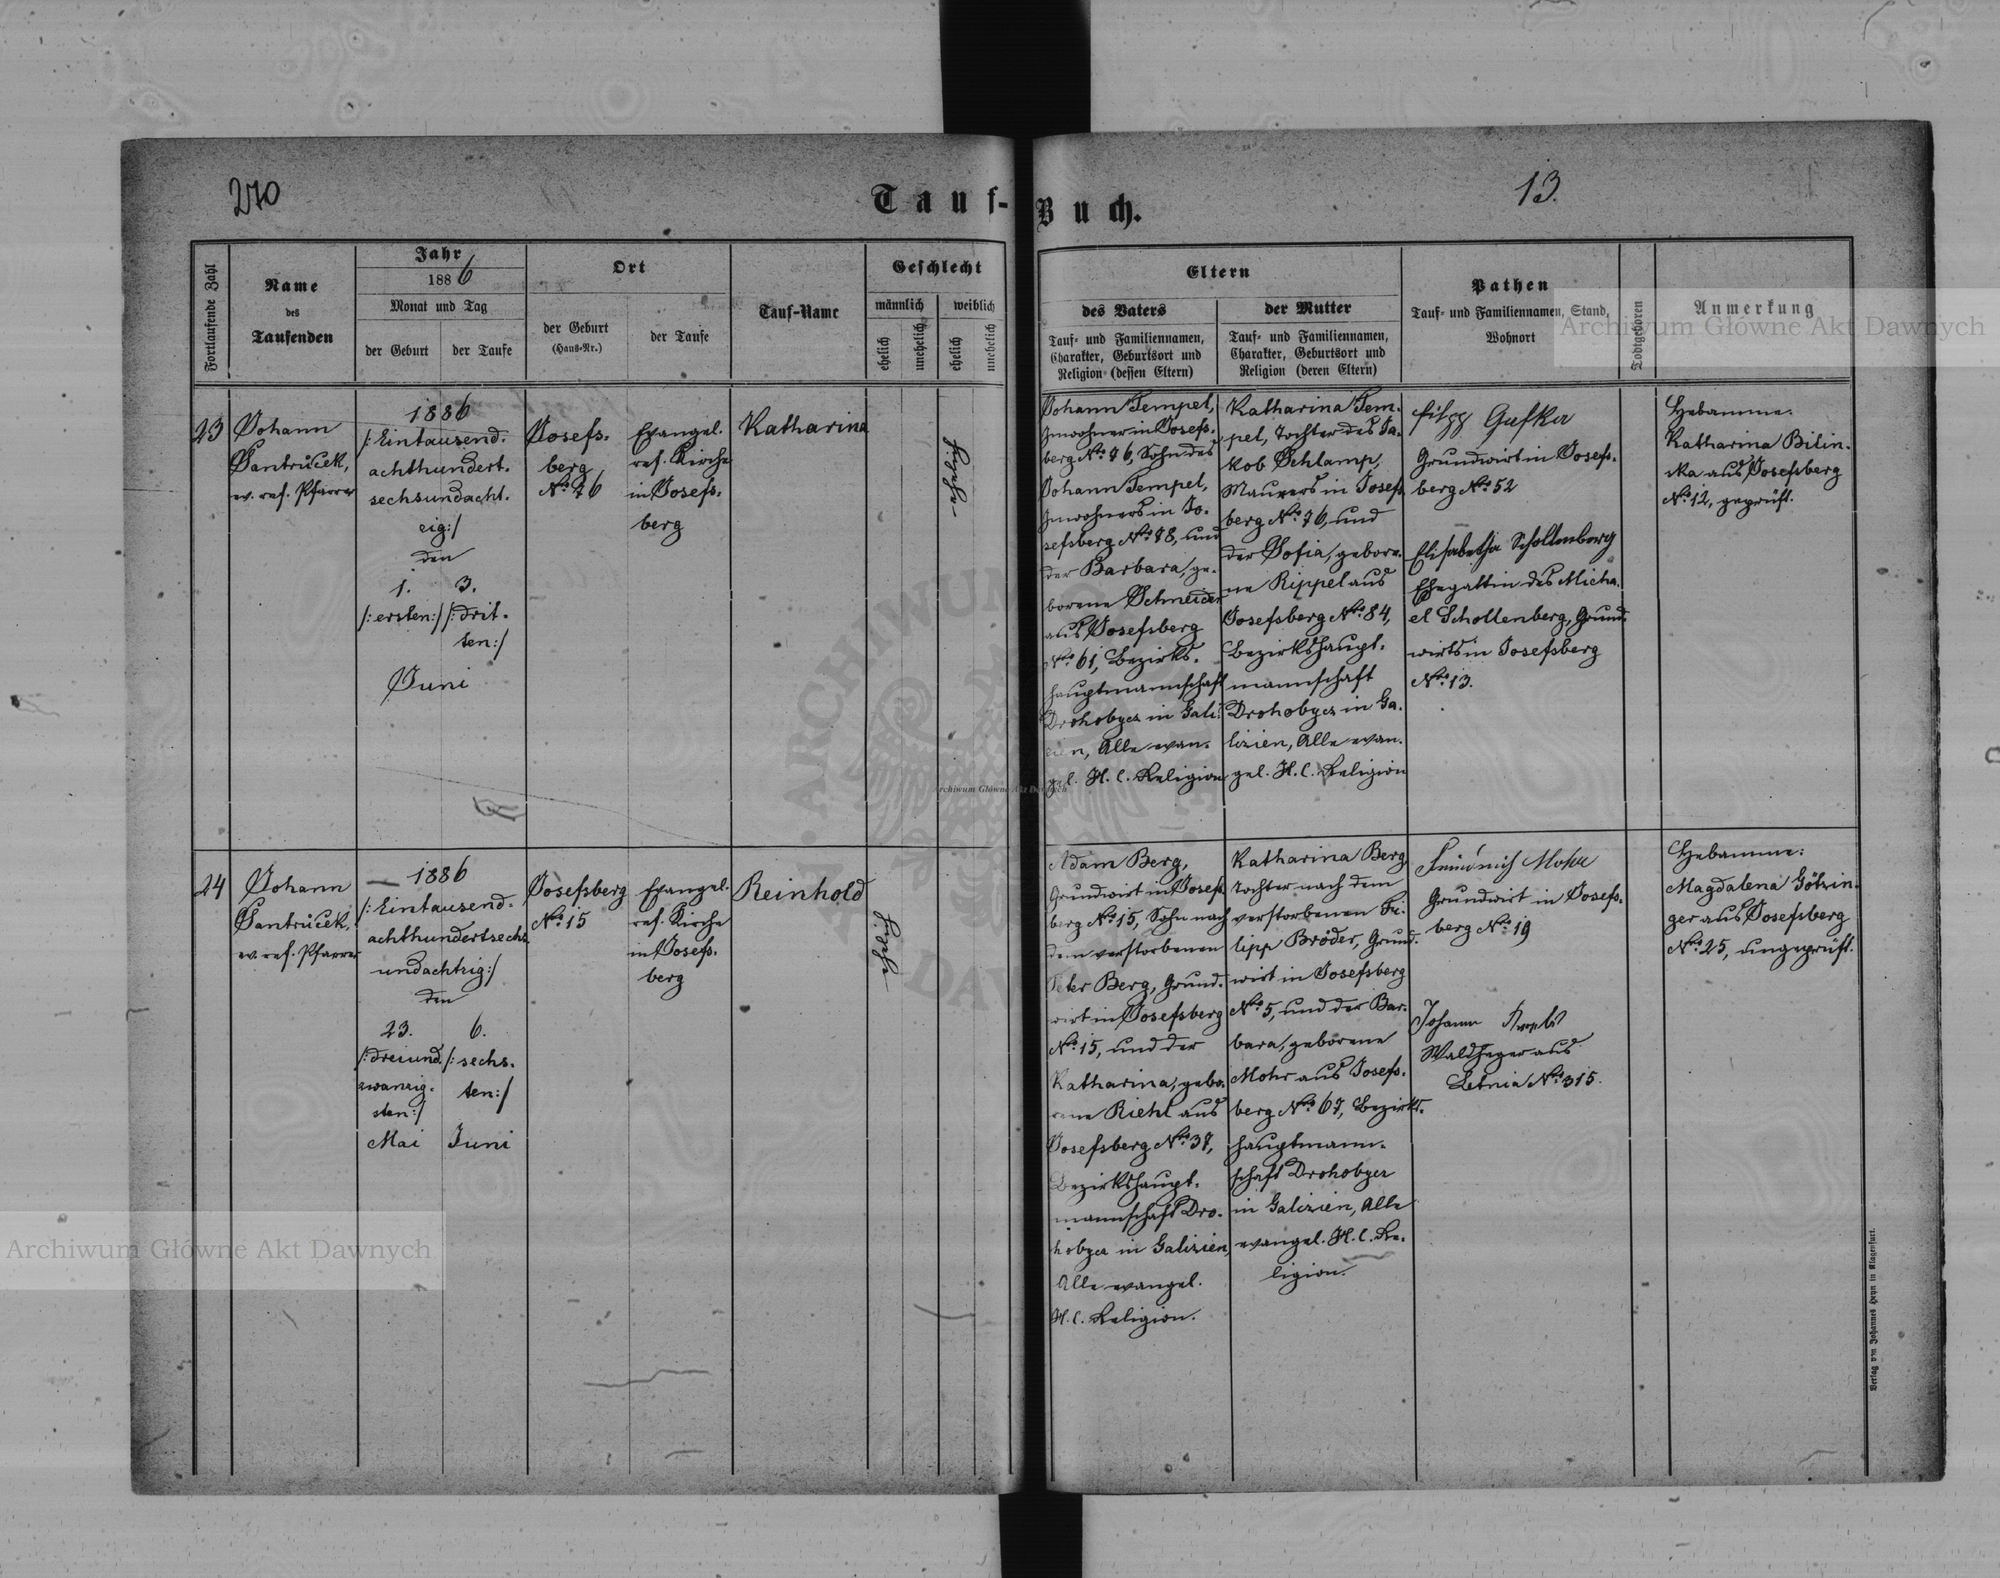 270
Tauf-Buch.
13.
Fortlaufende Zahl
Name
des
Taufenden
Jahr
1886
Monat und Tag
der Geburt
der Taufe
Ort
der Geburt
(Haus-Nr.)
der Taufe
Tauf-Name
Geschlecht
männlich
weiblich
ehelich
unehelich
ehelich
unehelich
Eltern
des Vaters
Tauf- und Familiennamen,
Charakter, Geburtsort und
Religion (dessen Eltern)
der Mutter
Tauf- und Familiennamen,
Charakter, Geburtsort und
Religion (deren Eltern)
Pathen
Tauf- und Familiennamen, Stand,
Wohnort
Todtgeboren
Anmerkung
23
Johann
Santrůček,
ev. ref. Pfarrer
1886
/: Eintausend-
achthundert-
sechsundacht-
zig :/
den
1. 3.
/: ersten :/ /: drit-
ten :/
Juni
Josefs-
berg
No. 76
Evangel.
ref. Kirche
in Josefs-
berg
Katharina
Johann Tempel,
Inwohner in Josefs-
berg No. 76, Sohn des
Johann Tempel,
Inwohners in Jo-
sefsberg No. 78, und
der Barbara, ge-
borene Schneider
aus Josefsberg
No. 61, Bezirks-
hauptmannschaft
Drohobycz in Gali-
zien, Alle evan-
gel. H. C. Religion
Katharina Tem-
pel, Tochter des Ja-
kob Schlamp,
Maurers in Josefs-
berg No. 76, und
der Sofia, gebore-
ne Rippel aus
Josefsberg No. 84,
Bezirkshaupt-
mannschaft
Drohobycz in Ga-
lizien, Alle evan-
gel. H. C. Religion
Grundwirt in Josefs-
berg No. 52
Elisabetha Schollenberg
Ehegattin des Micha-
el Schollenberg, Grund-
wirts in Josefsberg
No. 13.
Hebamme:
Katharina Bilin-
ska aus Josefsberg
No. 12, geprüft.
24
Johann
Santrůček,
ev. ref. Pfarrer
1886
/: Eintausend-
achthundertsechs-
undachtzig :/
den
23. 6.
/: dreiund- /: sechs-
zwanzig- ten :/
sten :/
Mai Juni
Josefsberg
No. 15
Evangel.
ref. Kirche
in Josefs-
berg
Reinhold
Adam Berg,
Grundwirt in Josefs-
berg No. 15, Sohn nach
dem verstorbenen
Peter Berg, Grund-
wirt in Josefsberg
No. 15, und der
Katharina, gebo-
rene Riehl aus
Josefsberg No. 37,
Bezirkshaupt-
mannschaft Dro-
hobycz in Galizien,
Alle evangel.
H. C. Religion.
Katharina Berg
Tochter nach dem
verstorbenen Fi-
lipp Bröder, Grund-
wirt in Josefsberg
No. 5, und der Bar-
bara, geborene
Mohr aus Josefs-
berg No. 67, Bezirks-
hauptmann-
schaft Drohobycz
in Galizien, Alle
evangel. H. C. Re-
ligion.
Heinrich Mohr
Grundwirt in Josefs-
berg No. 19
Johann
Waldheger aus
Letnia No. 315.
Hebamme:
Magdalena Götzin-
ger aus Josefsberg
No. 25, ungeprüft.
Verlag von Johannes Heyn in Klagenfurt.
Archiwum Główne Akt Dawnych
Archiwum Główne Akt Dawnych
Archiwum Główne Akt Dawnych